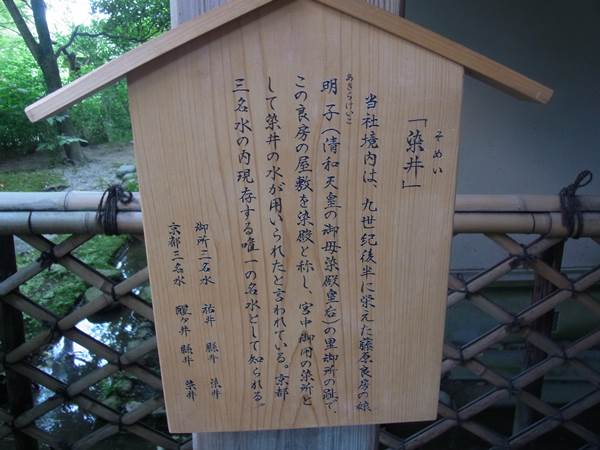 「染井」
そめい
当社境内は、九世紀後半に栄えた藤原良房の娘
明子（清和天皇の御母染殿皇后）の里御所の跡で、
あきらけいこ
この良房の屋敷を染殿と称し、宮中御用の染所と
して染井の水が用いられたと言われている。京都
三名水の内現存する唯一の名水として知られる。
御所三名水 祐井 縣井 染井
京都三名水 醒ヶ井 縣井 染井